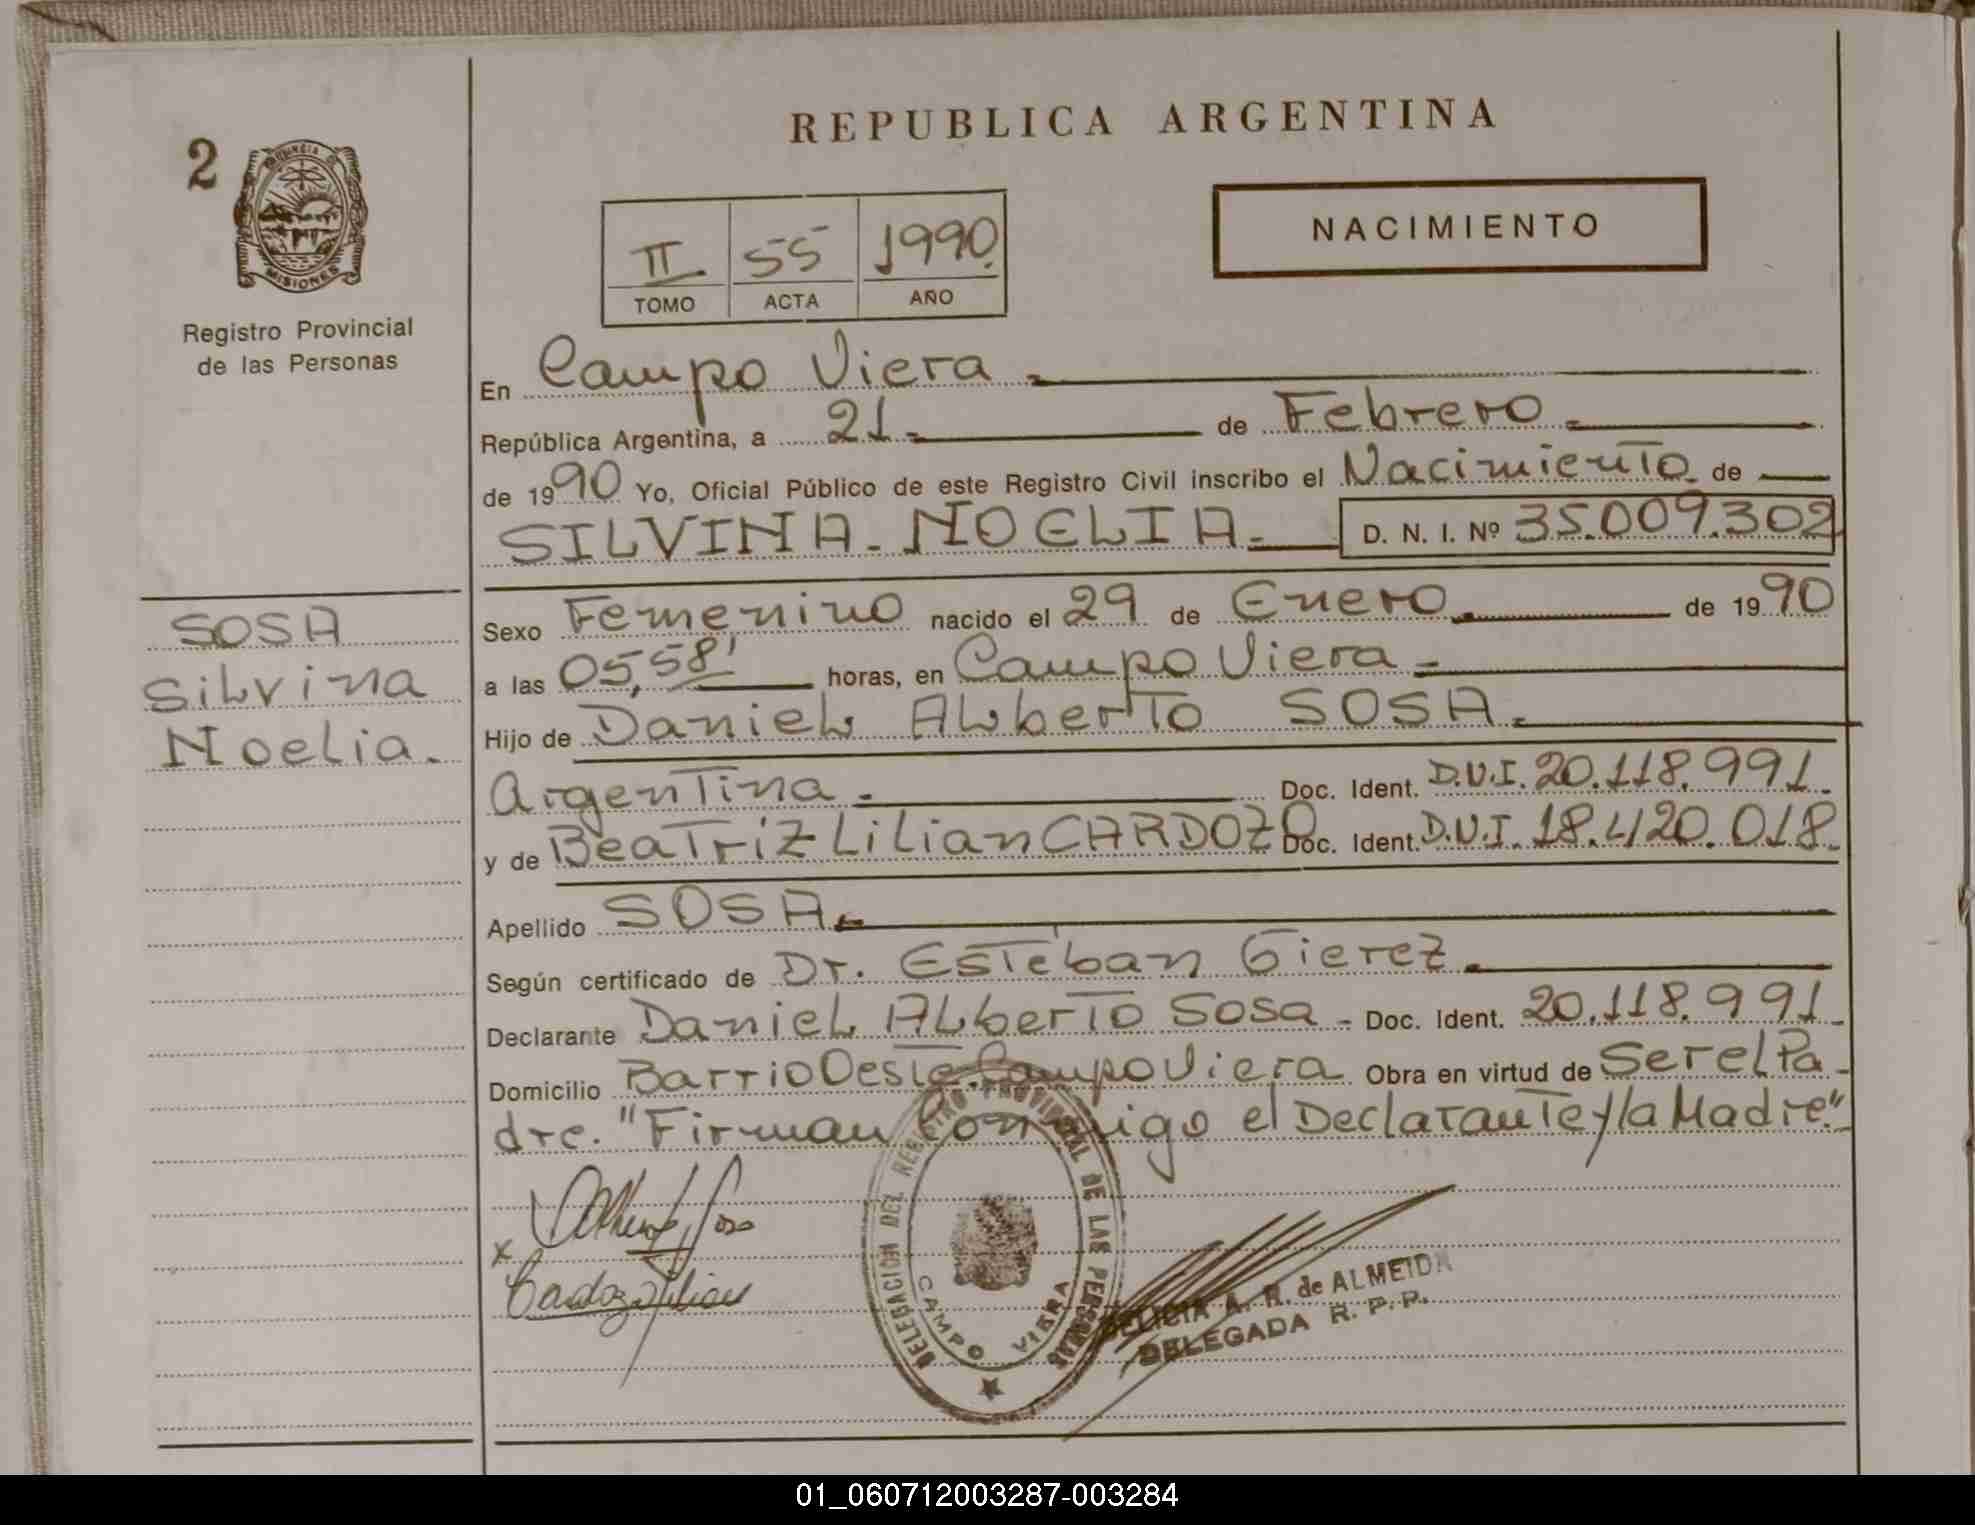 REPUBLICA ARGENTINA
2
PROVINCIA DE
MISIONES
Registro Provincial
de las Personas
II
55
1990
TOMO
ACTA
AÑO
NACIMIENTO
En Campo Viera
República Argentina, a 21 de Febrero
de 1990 Yo, Oficial Público de este Registro Civil inscribo el Nacimiento de
SILVINA NOELIA D. N. I. Nº 35.009.302
SOSA
Silvina
Noelia.
Sexo Femenino nacido el 29 de Enero de 1990
a las 05,58' horas, en Campo Viera
Hijo de Daniel Alberto SOSA
Argentina Doc. Ident. D.N.I. 20.118.991
y de Beatriz Lilian CARDOZO Doc. Ident. D.N.I. 18.420.018
Apellido SOSA
Según certificado de Dr. Esteban Gierez
Declarante Daniel Alberto Sosa Doc. Ident. 20.118.991
Domicilio Barrio Oeste Campo Viera Obra en virtud de Ser el Pa
dre. "Firman Conmigo el Declarante y la Madre."
Alberto Sosa
x
Cardozo Lilian
DELEGACION DEL REGISTRO PROVINCIAL DE LAS PERSONAS
CAMPO VIERA
DELICIA A. R. de ALMEIDA
DELEGADA R. P. P.
01_060712003287-003284